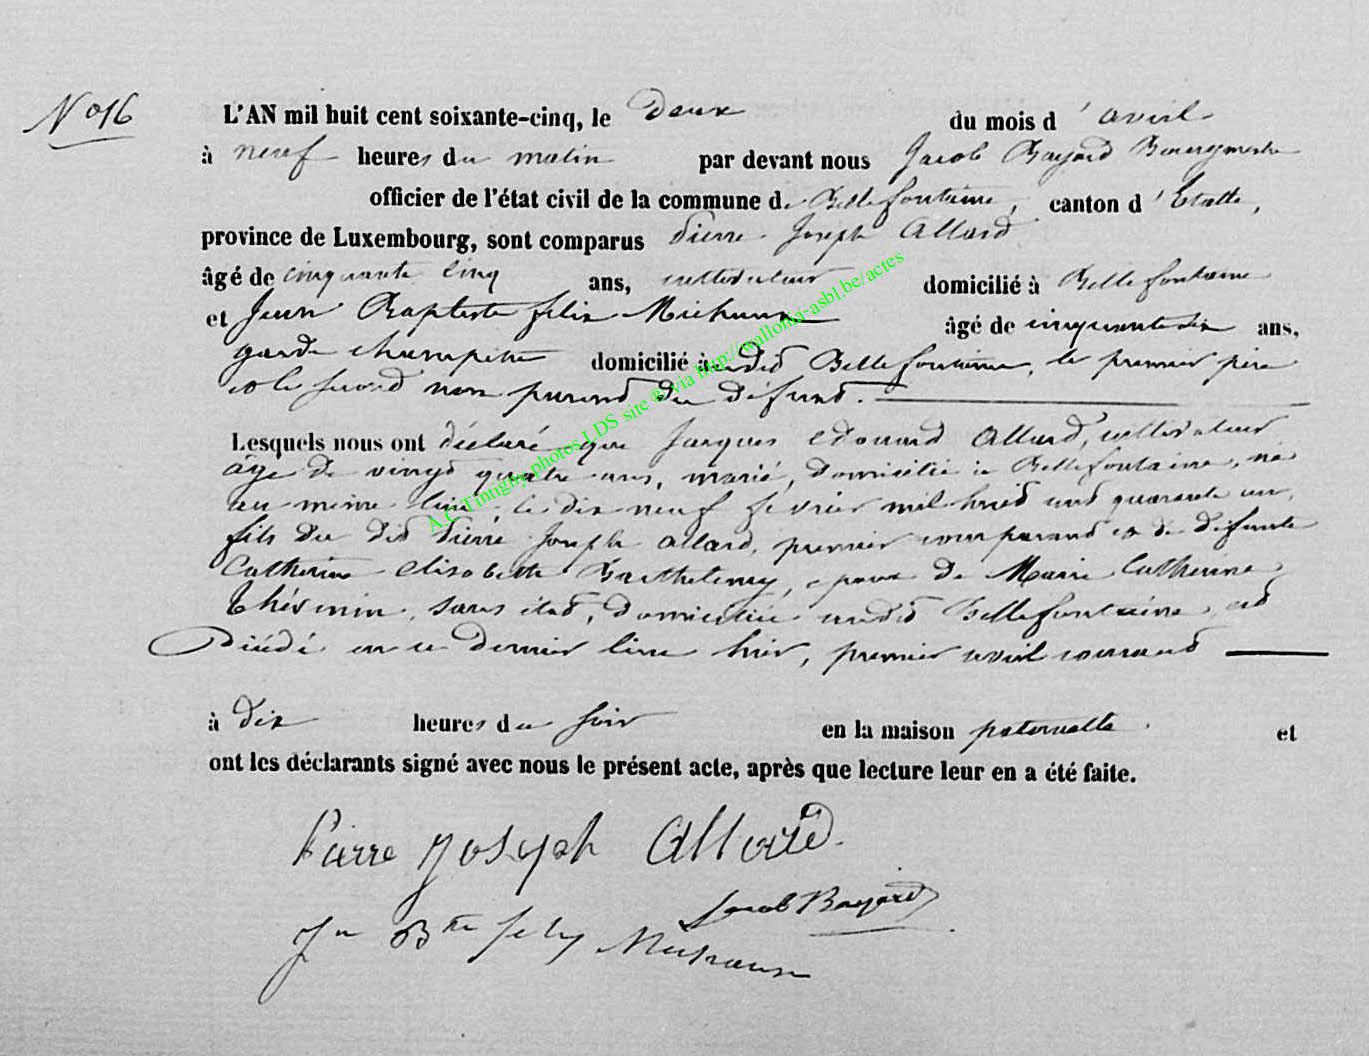 N° 16
L'AN mil huit cent soixante-cinq, le Deux du mois d'avril
à neuf heures du matin par devant nous Jacob Bayard Bourgmestre
officier de l'état civil de la commune de Bellefontaine, canton d'Etalle,
province de Luxembourg, sont comparus Pierre Joseph Allard
âgé de cinquante cinq ans, cultivateur domicilié à Bellefontaine
et Jean Baptiste felix Michaux âgé de cinquante six ans,
garde champêtre domicilié audit Bellefontaine, le premier père
et le second non parent du défunt.
Lesquels nous ont déclaré que Jacques edouard Allard, cultivateur
âgé de vingt quatre ans, marié, domicilié à Bellefontaine, né
au même lieu le dix neuf février mil huit cent quarante un,
fils du dit Pierre Joseph Allard, premier comparant et de défunte
Catherine elisabeth Barthelemy, epoux de Marie Catherine
Thésinin, sans état, domiciliée audit Bellefontaine, est
Décédé en ce dernier lieu hier, premier avril courant
à dix heures du soir en la maison paternelle. et
ont les déclarants signé avec nous le présent acte, après que lecture leur en a été faite.
Pierre Joseph Allard
Jacob Bayard
Jn Bte felix Michaux
A.C. Tintigny photos LDS site @ via http://wallonia-asbl.be/actes